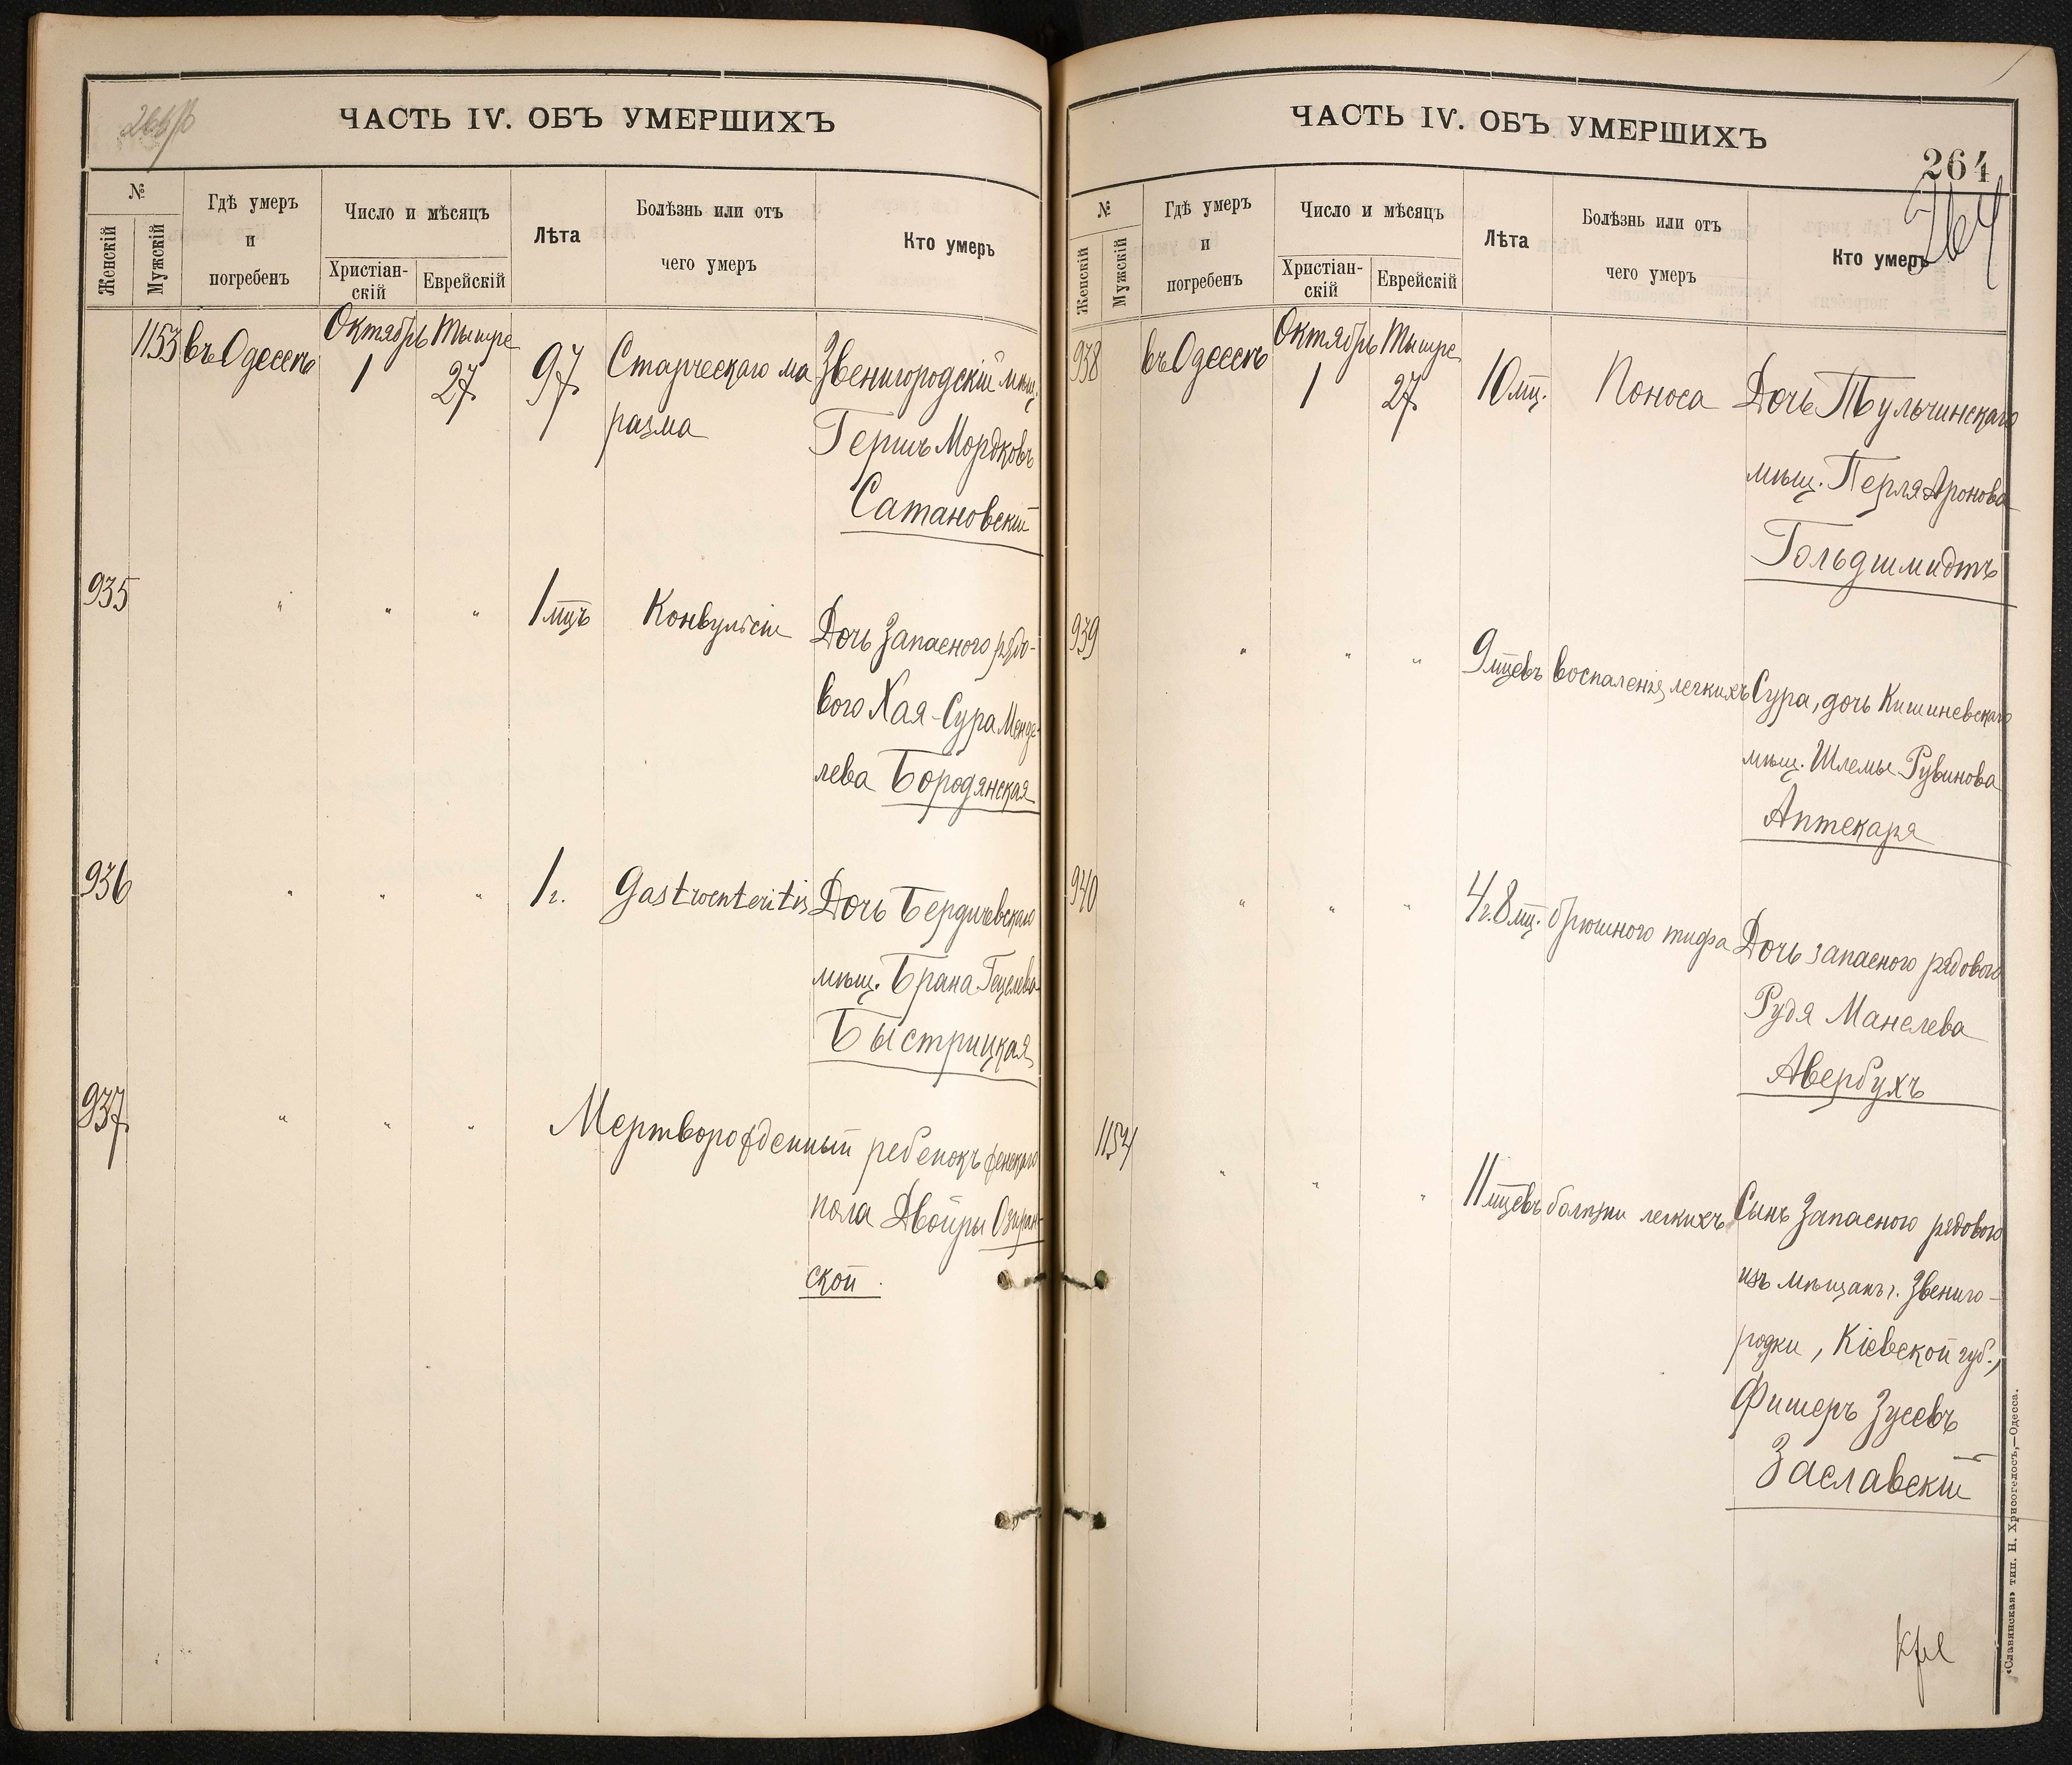 ЧАСТЬ IV. ОБЪ УМЕРШИХЪ
№
Женскій
Мужскій
Гдѣ умеръ
и
погребенъ
Число и мѣсяцъ
Христіан-
скій
Еврейскій
Лѣта
Болѣзнь или отъ
чего умеръ
Кто умеръ
1153 въ Одессѣ Октябрь 1 Тышре 27 97 Старческаго ма Звенигородскій мѣщ.
разма Гершъ Мордковъ
Сатановскій
935 " " " 1 мцъ Конвульсіи Дочь Запасного рядо-
вого Хая-Сура Менде-
лева Бородянская
936 " " " 1 г. Gastroenteritis Дочь Бердичевскаго
мѣщ. Брана Гецелева
Быстрицкая
937 " " " Мертворожденный ребенокъ женскаго
пола Двойры Озиран-
ской.
ЧАСТЬ IV. ОБЪ УМЕРШИХЪ
264
264
№
Женскій
Мужскій
Гдѣ умеръ
и
погребенъ
Число и мѣсяцъ
Христіан-
скій
Еврейскій
Лѣта
Болѣзнь или отъ
чего умеръ
Кто умеръ
938 въ Одессѣ Октябрь 1 Тышре 27 10 мц. Поноса Дочь Тульчинскаго
мѣщ. Перля Аронова
Гольдшмидтъ
939 " " " 9 мцевъ воспаленія легкихъ Сура, дочь Кишиневскаго
мѣщ. Шлемы Рувинова
Аптекаря
940 " " " 4 г. 8 мц. брюшного тифа Дочь запасного рядового
Рудя Манелева
Авербухъ
1154 " " " 11 мцевъ болѣзни легкихъ Сынъ Запасного рядового
изъ мѣщанъ г. Звениго-
родки, Кіевской губ.,
Фишеръ Зусевъ
Заславскій
«Славянская» тип. Н. Хрисогелосъ,—Одесса.